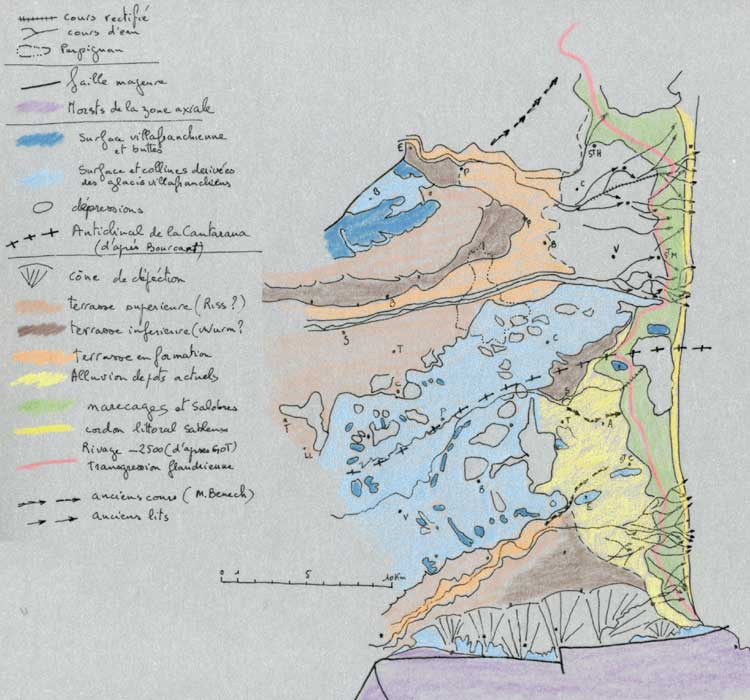 cours rectifié
cours d'eau
Perpignan
faille majeure
Horsts de la zone axiale
Surface villafranchienne
et buttes
Surface et collines derivées
des glacis villafranchiens
dépressions
Anticlinal de la Cantarana
(d'après Bourcart)
cône de déjection
terrasse superieure (Riss ?)
terrasse inferieure (Wurm ?
Terrasse en formation
Alluvion depots actuels
marecages et Salobres
cordon littoral sableux
Rivage -2500 (d'apres GOT)
Transgression flandrienne
anciens cours (M. Benech)
anciens lits
E
P
B
St H
C
B
V
S
T
C
C
T
P
T
A
B
V
E
0 1 5 10 Km